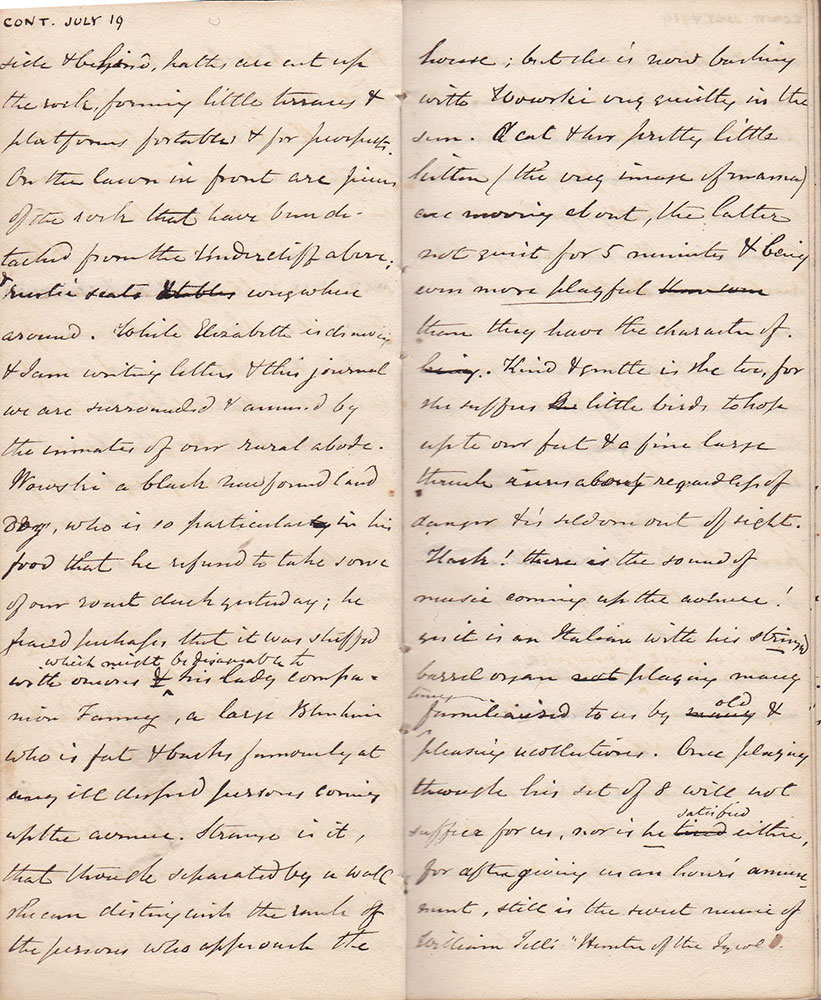 CONT. JULY 19
side & behind, paths are cut up
the rock, forming little terraces &
platforms for tables & for prospects.
On the lawn in front are pieces
of the rock that have been de-
tached from the Undercliff above;
& rustic seats & tables everywhere
around. While Elizabeth is drawing
& I am writing letters & this journal
we are surrounded & amused by
the inmates of our rural abode.
Wowski a black newfoundland
Dog, who is so particular in his
food that he refused to take some
of our roast duck yesterday; he
feared perhaps that it was stuffed
which might be disagreeable to
with onions & his lady compa-
nion Fanney, a large Blenheim
who is fat & barks furiously at
any ill dressed persons coming
up the avenue. Strange is it,
that though separated by a wall
she can distinguish the rank of
the persons who approach the
house; but she is now basking
with Wowski very quietly in the
sun. A cat & her pretty little
kitten (the very image of mama)
are moving about, the latter
not quiet for 5 minutes & being
even more playful than even
than they have the character of
being. Kind & gentle is she too, for
she suffers little birds to hop
up to our feet & a fine large
thrush runs about regardless of
danger & is seldom out of sight.
Hark! there is the sound of
music coming up the avenue!
yes it is an Italian with his stringed
barrel organ not playing many
tunes old
familiarised to us by many &
pleasing recollections. Once playing
through his set of 8 will not
satisfied
suffice for us, nor is he tired either,
for after giving us an hour's amuse-
ment, still is the sweet music of
William Tell's "Hunter of the Tyrol".